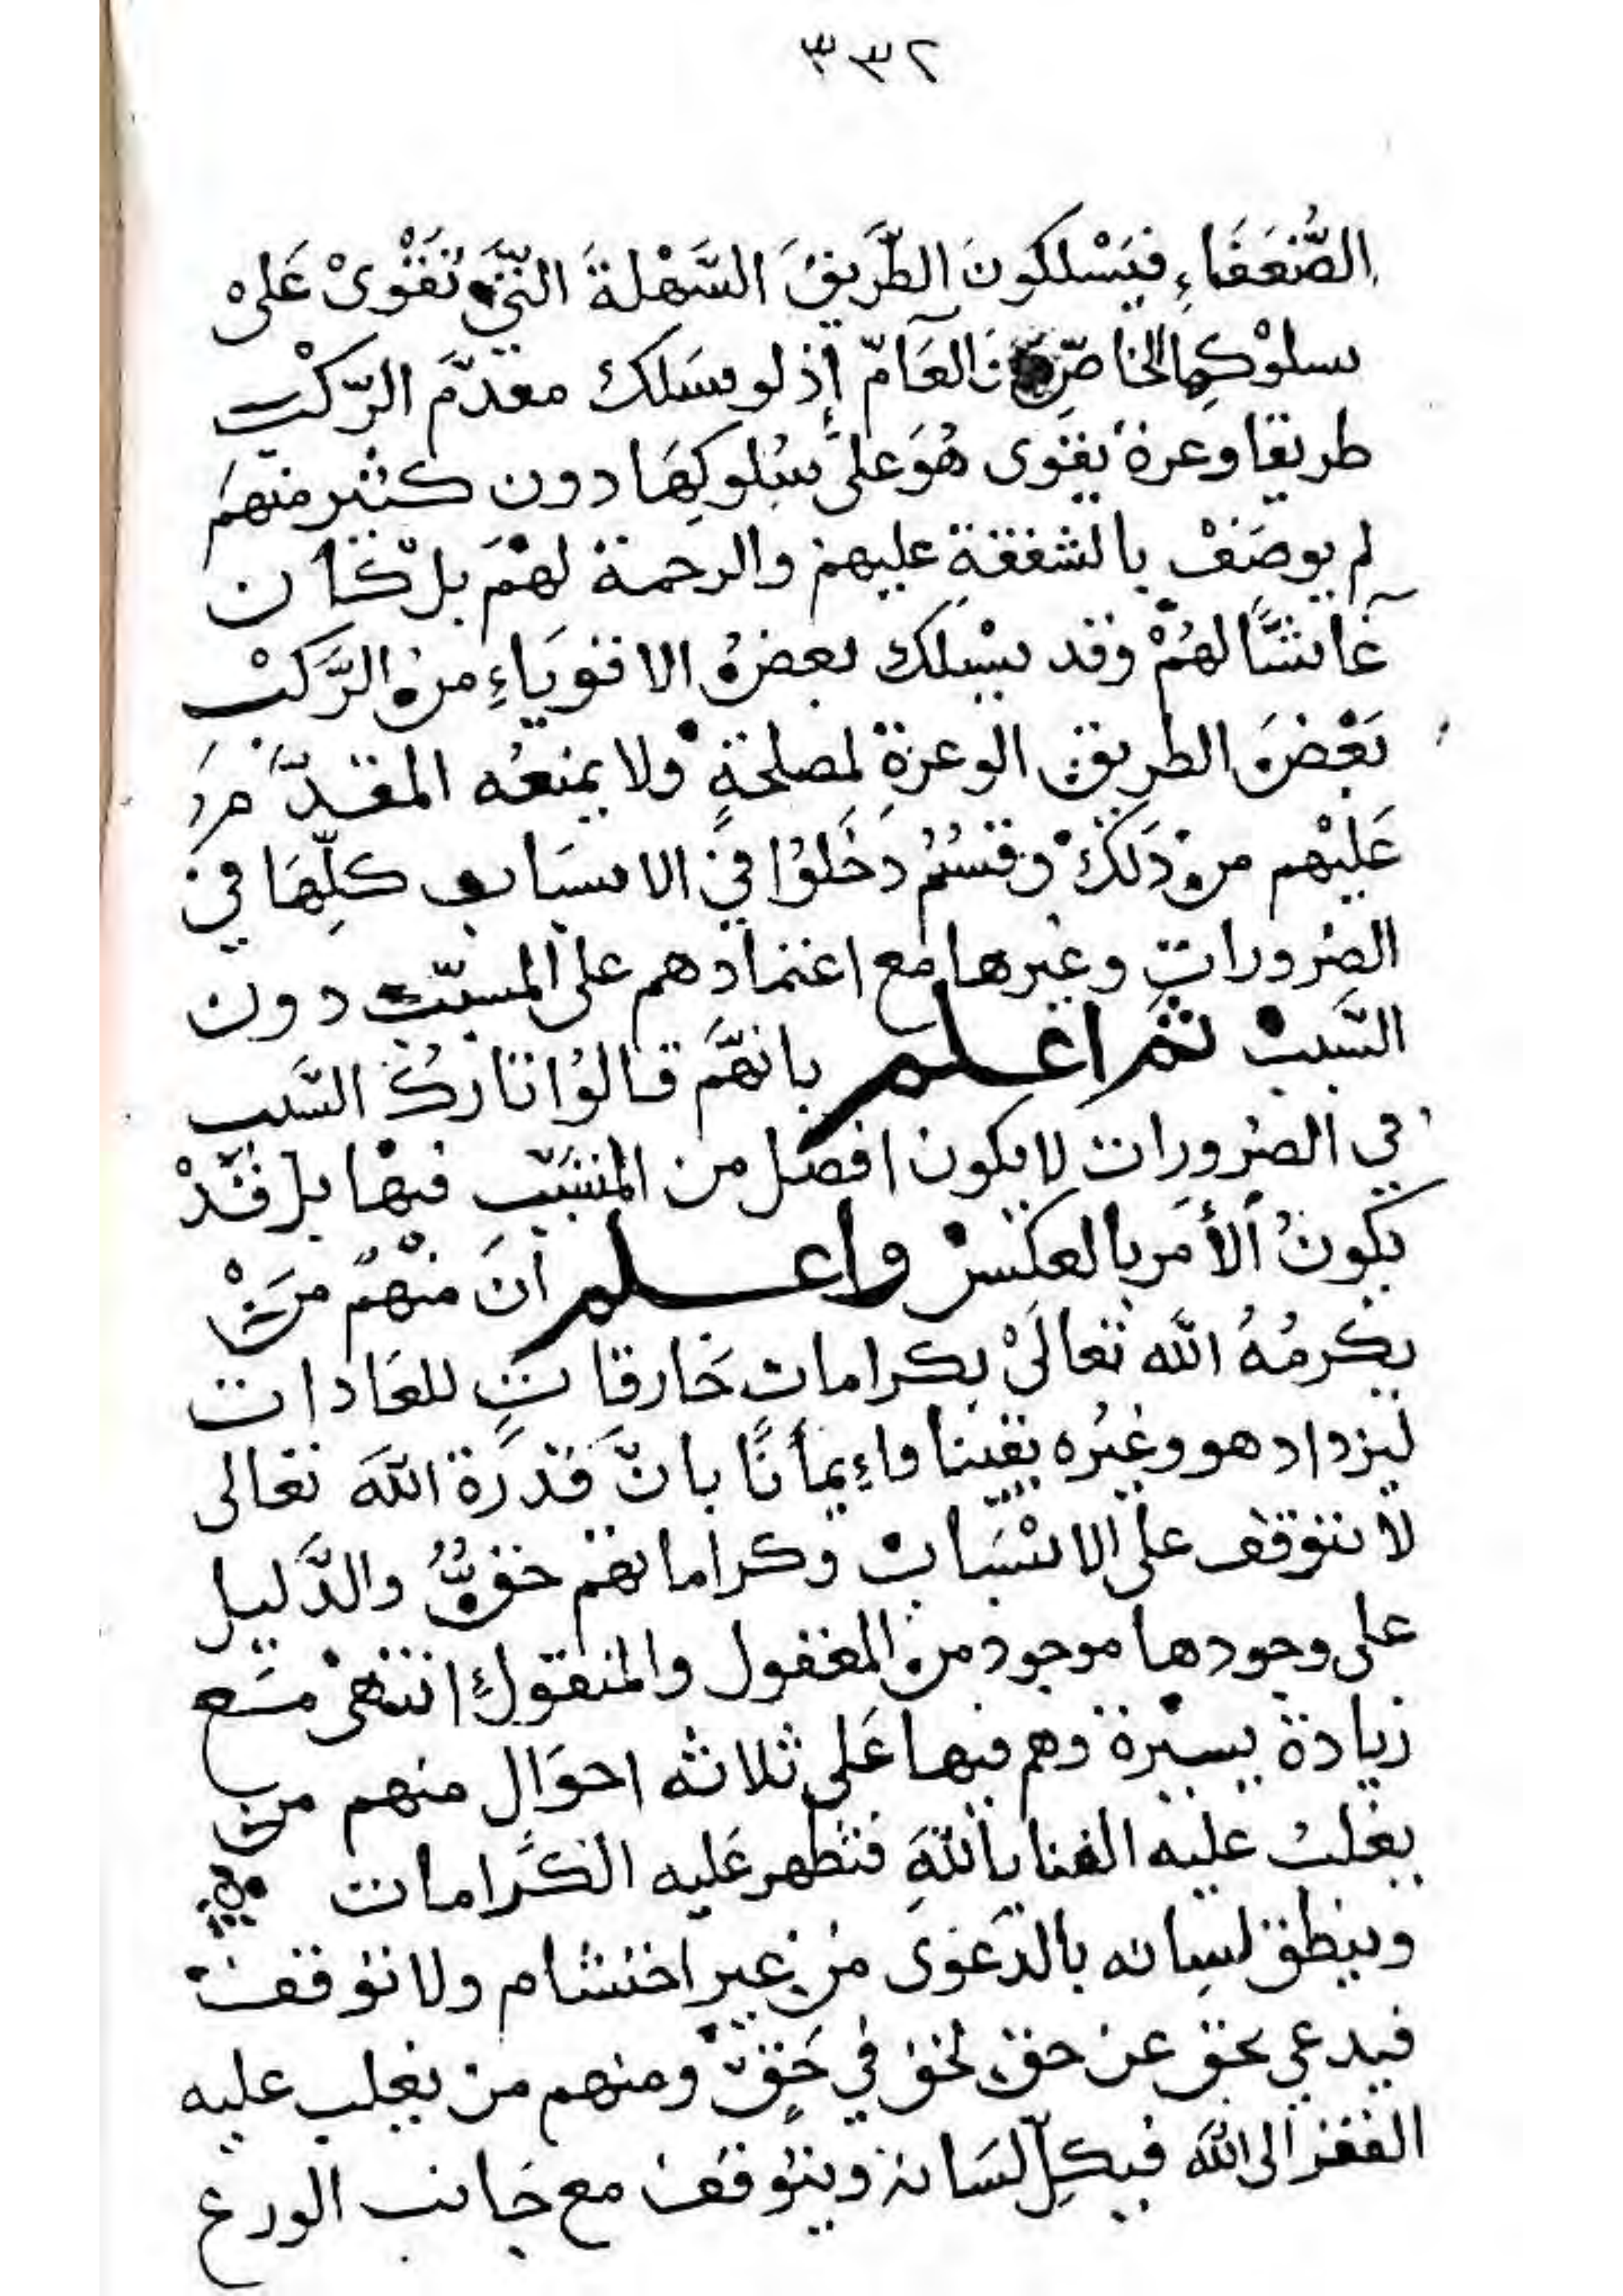 ٣٣٢
الضُّعَفَاءِ فيَسْلكونَ الطَّريقَ السَّهْلةَ التّي تَقَوْىْ عَلى
سلوْكِها الخاصّ وَالعَامّ إذ لو سَلك مقدّم الرّكْب
طريقا وعرة يقوى هُوَ على سُلوكِهَا دون كثير منهم
لم يوصَفْ بالشفقةِ عليهمْ والرحمة لهمْ بلْ كان
غاشًّا لهُمْ وقد يسْلك بعضُ الاقويَاءِ منَ الرَّكْب
بَعْضَ الطريق الوعرَةِ لمصلحةٍ ولا يمنعُه المقدّم
عَليْهم منْ ذَلكَ وقسْمٌ دَخَلوُا فيْ الاسبَاب كلِّهَا فيْ
الضرورات وغيرها مع اعتمادهم على المسبّب دون
السَّببْ ثم اعلم بانهَّم قالوُا تاركُ السَّبب
في الضرورات لا يكون افضل من المتسَبّب فيْها بل قَدْ
يكونُ الأمَر بالعكْس واعلم انَ منْهمْ مَنْ
يكرمُهُ الله تعالىْ بكرامات خَارقاتٍ للعَادات
ليزداد هو وغيُره يقينا وإيمانًا بانّ قدْرَة اللهَ تعالى
لا تتوقف على الاسْبَاب وكراماتهمْ حقٌّ والدَّليل
على وجودها موجود من المعقول والمنقولِ انتهىْ مَع
زيادة يسيْرة وهم فيها عَلى ثلاثه احوَال منهم من
يغلبُ عليه الفنا باللهَ فتظهر عَليه الكَرامات
وينطق لسانه بالدَعْوى منْ غير احتشام ولا توقف
فيدعي بحق عن حق لحق في حَقّ ومنهم من يغلب عليه
الفقر الى اللهَ فيكلّ لسَانه ويتوقف مع جانب الورع